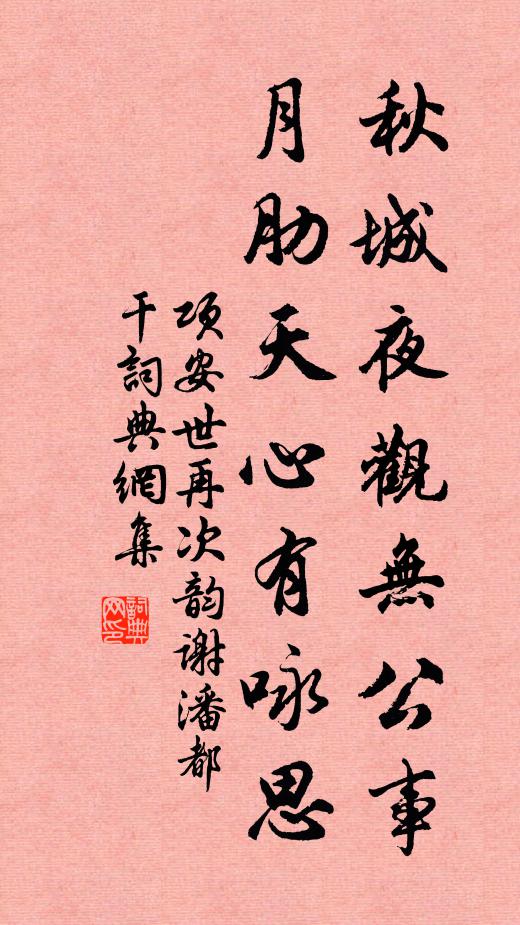 秋城夜觀無公事
月肋天心有咏思
项安世再次韵謝潘都
干詞典網集
詞典網印